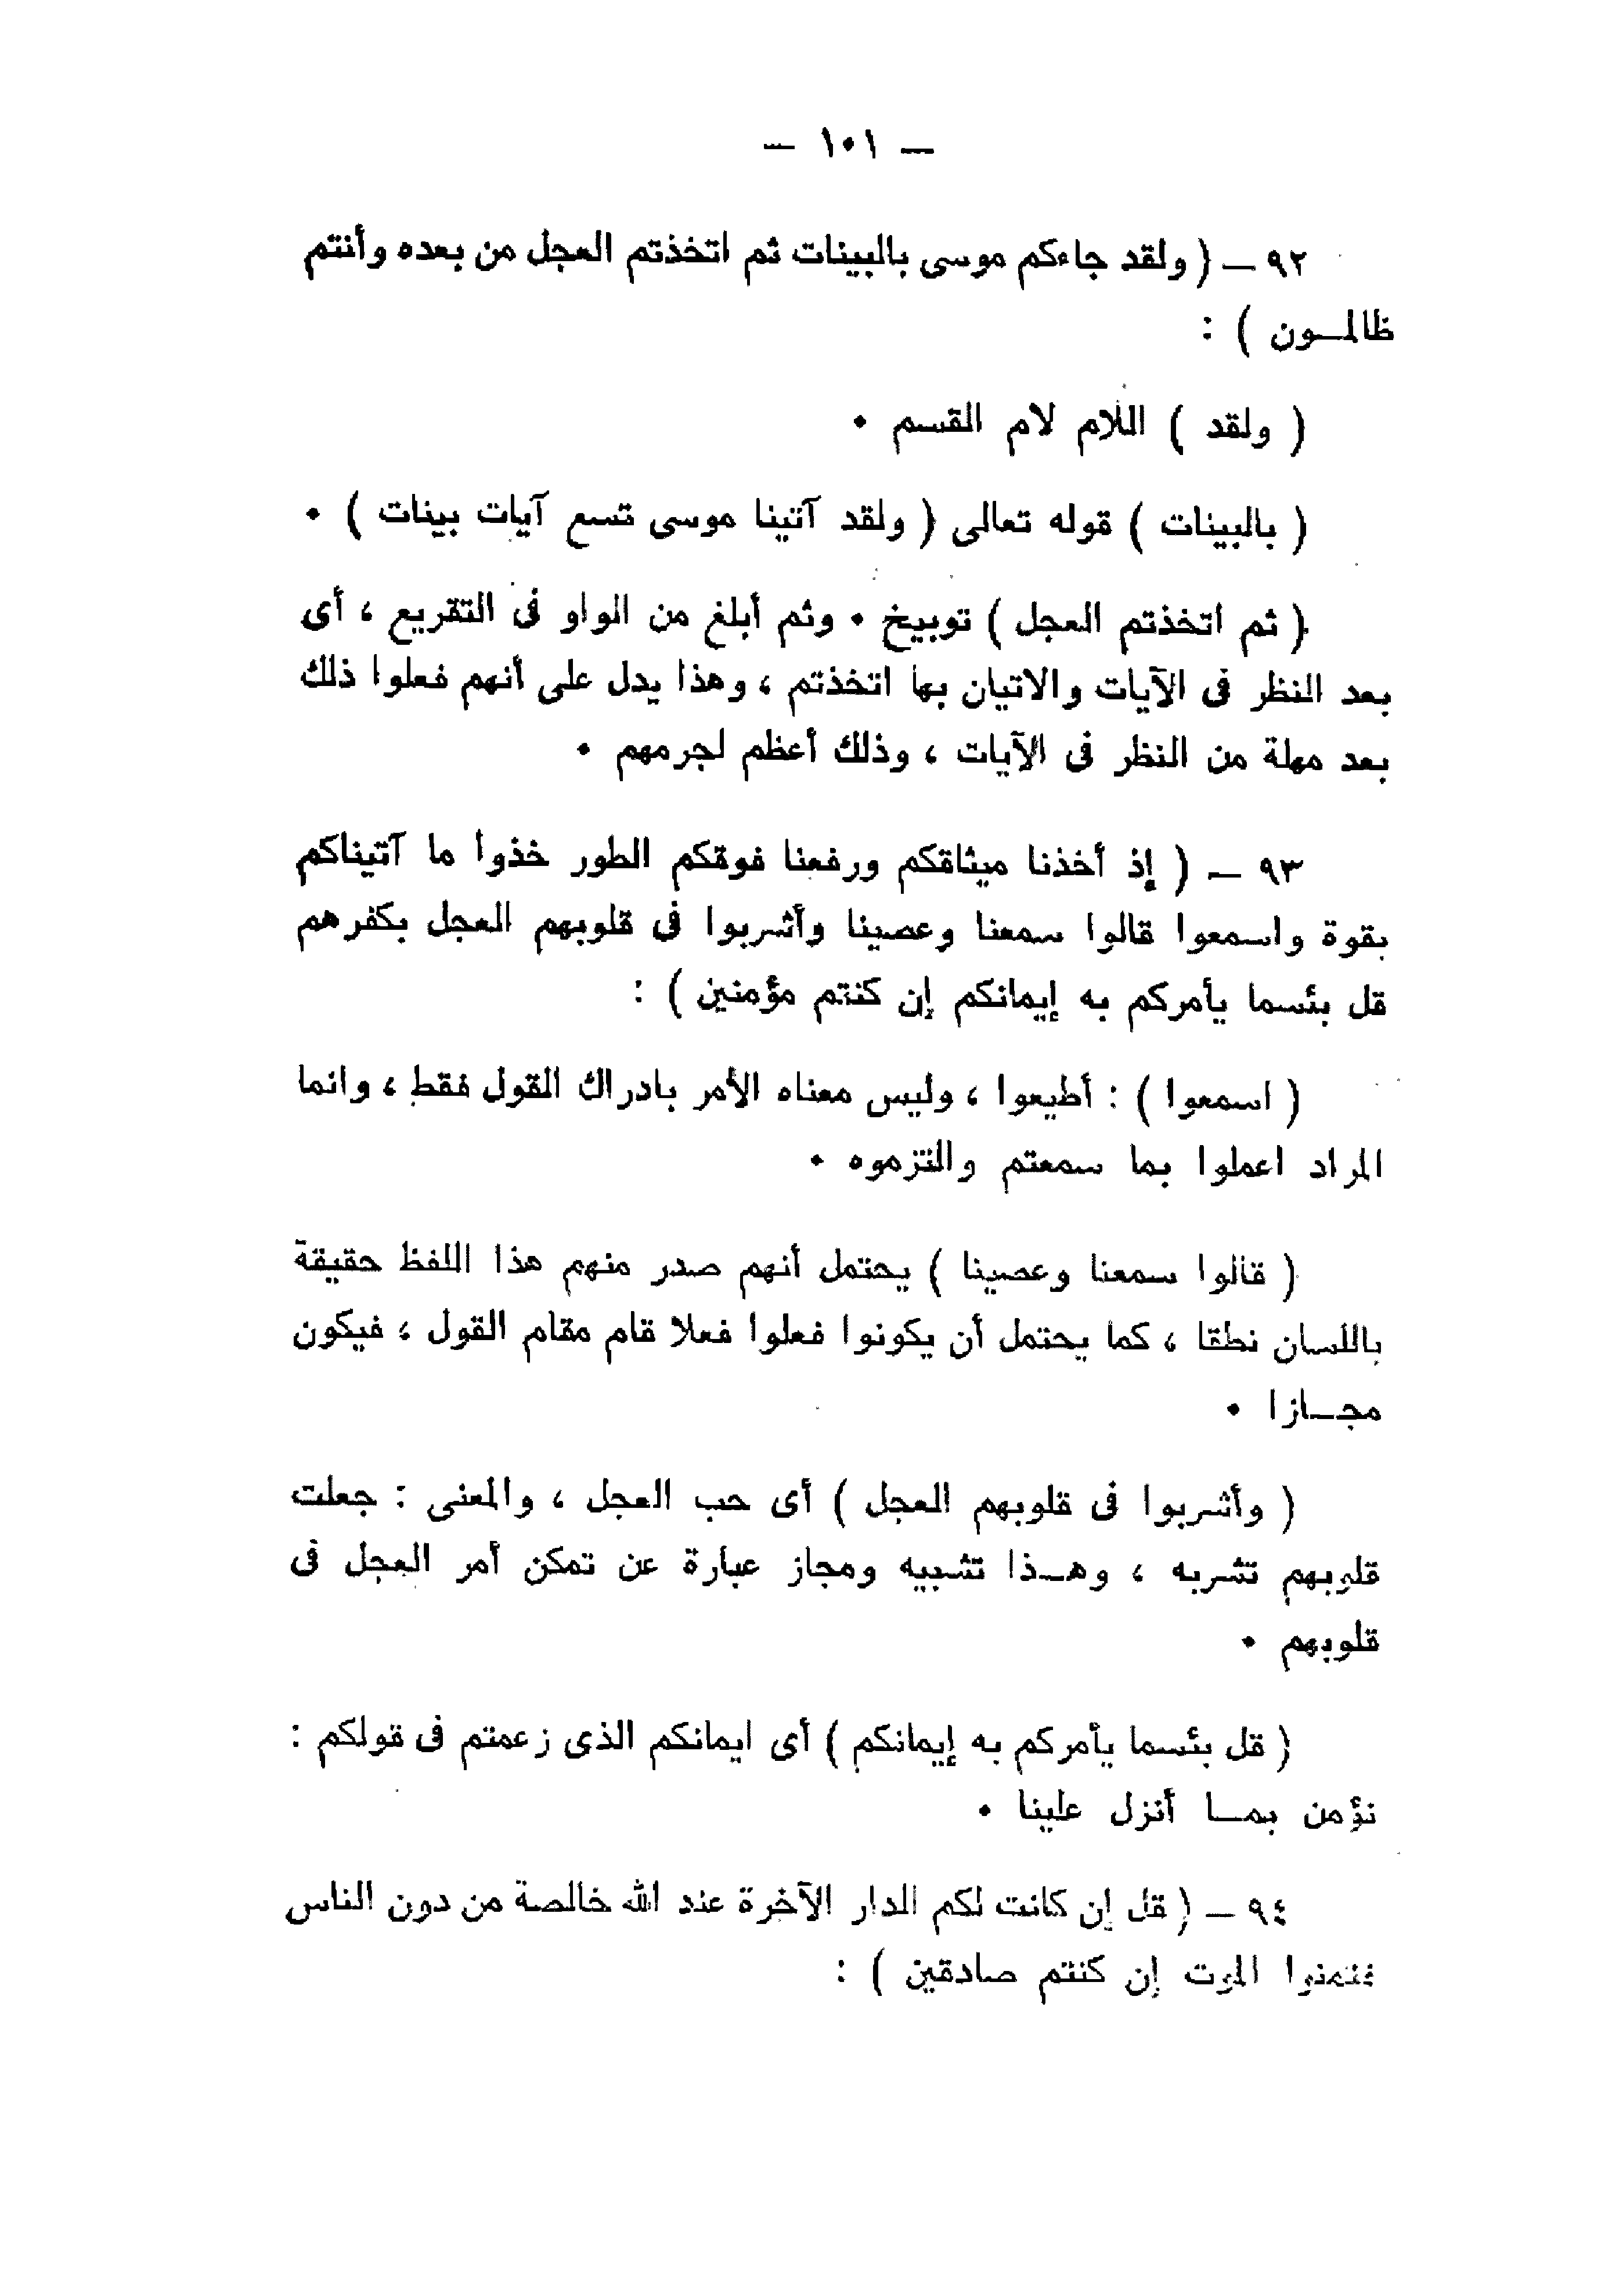 — ١٠١ —
٩٢ — ( ولقد جاءكم موسى بالبينات ثم اتخذتم العجل من بعده وأنتم
ظالمــون ) :
( ولقد ) اللام لام القسم ٠
( بالبينات ) قوله تعالى ( ولقد آتينا موسى تسع آيات بينات ) ٠
( ثم اتخذتم العجل ) توبيخ ٠ وثم أبلغ من الواو فى التقريع ، أى
بعد النظر فى الآيات والاتيان بها اتخذتم ، وهذا يدل على أنهم فعلوا ذلك
بعد مهلة من النظر فى الآيات ، وذلك أعظم لجرمهم ٠
٩٣ — ( إذ أخذنا ميثاقكم ورفعنا فوقكم الطور خذوا ما آتيناكم
بقوة واسمعوا قالوا سمعنا وعصينا وأشربوا فى قلوبهم العجل بكفرهم
قل بئسما يأمركم به إيمانكم إن كنتم مؤمنين ) :
( اسمعوا ) : أطيعوا ، وليس معناه الأمر بادراك القول فقط ، وانما
المراد اعملوا بما سمعتم والتزموه ٠
( قالوا سمعنا وعصينا ) يحتمل أنهم صدر منهم هذا اللفظ حقيقة
باللسان نطقا ، كما يحتمل أن يكونوا فعلوا فعلا قام مقام القول ، فيكون
مجــازا ٠
( وأشربوا فى قلوبهم العجل ) أى حب العجل ، والمعنى : جعلت
قلوبهم تشربه ، وهــذا تشبيه ومجاز عبارة عن تمكن أمر العجل فى
قلوبهم ٠
( قل بئسما يأمركم به إيمانكم ) أى ايمانكم الذى زعمتم فى قولكم :
نؤمن بمــا أنزل علينا ٠
٩٤ — ( قل إن كانت لكم الدار الآخرة عند الله خالصة من دون الناس
فتمنوا الموت إن كنتم صادقين ) :